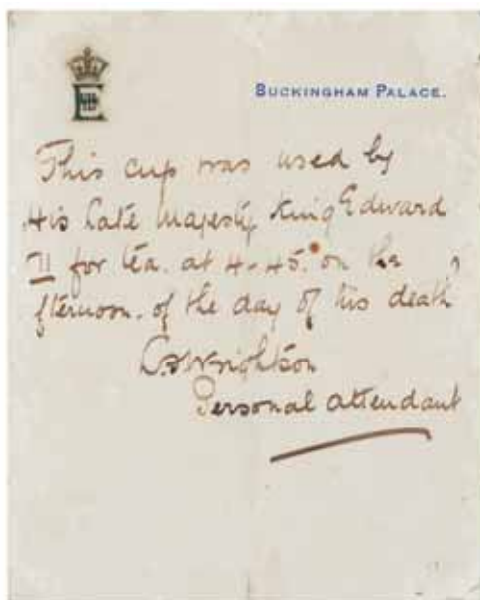 BUCKINGHAM PALACE.
This cup was used by
His Late Majesty King Edward
VII for tea. at 4-45. on the
afternoon. of the day of his death
Wrightson
Personal attendant